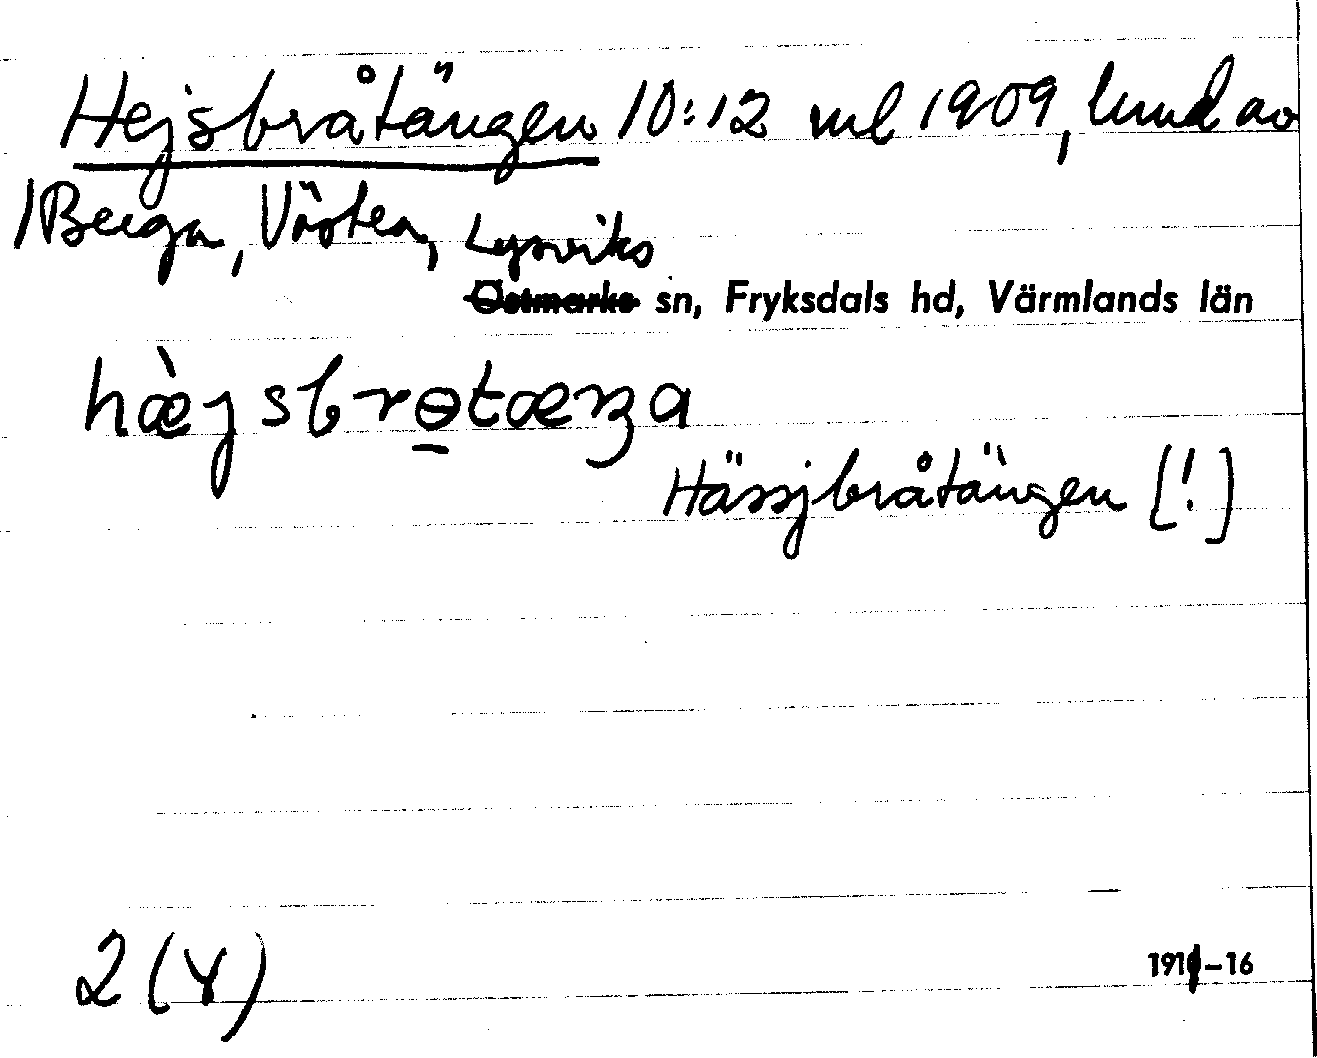 Hejsbråtängen 10:12 ml 1909, lund av
/Berga, Västra, Lysviks
Östmarks sn, Fryksdals hd, Värmlands län
hæ̀jsbrɵ̠tæŋa
Hässjbråtängen [!]
2 (Y)
1911–16